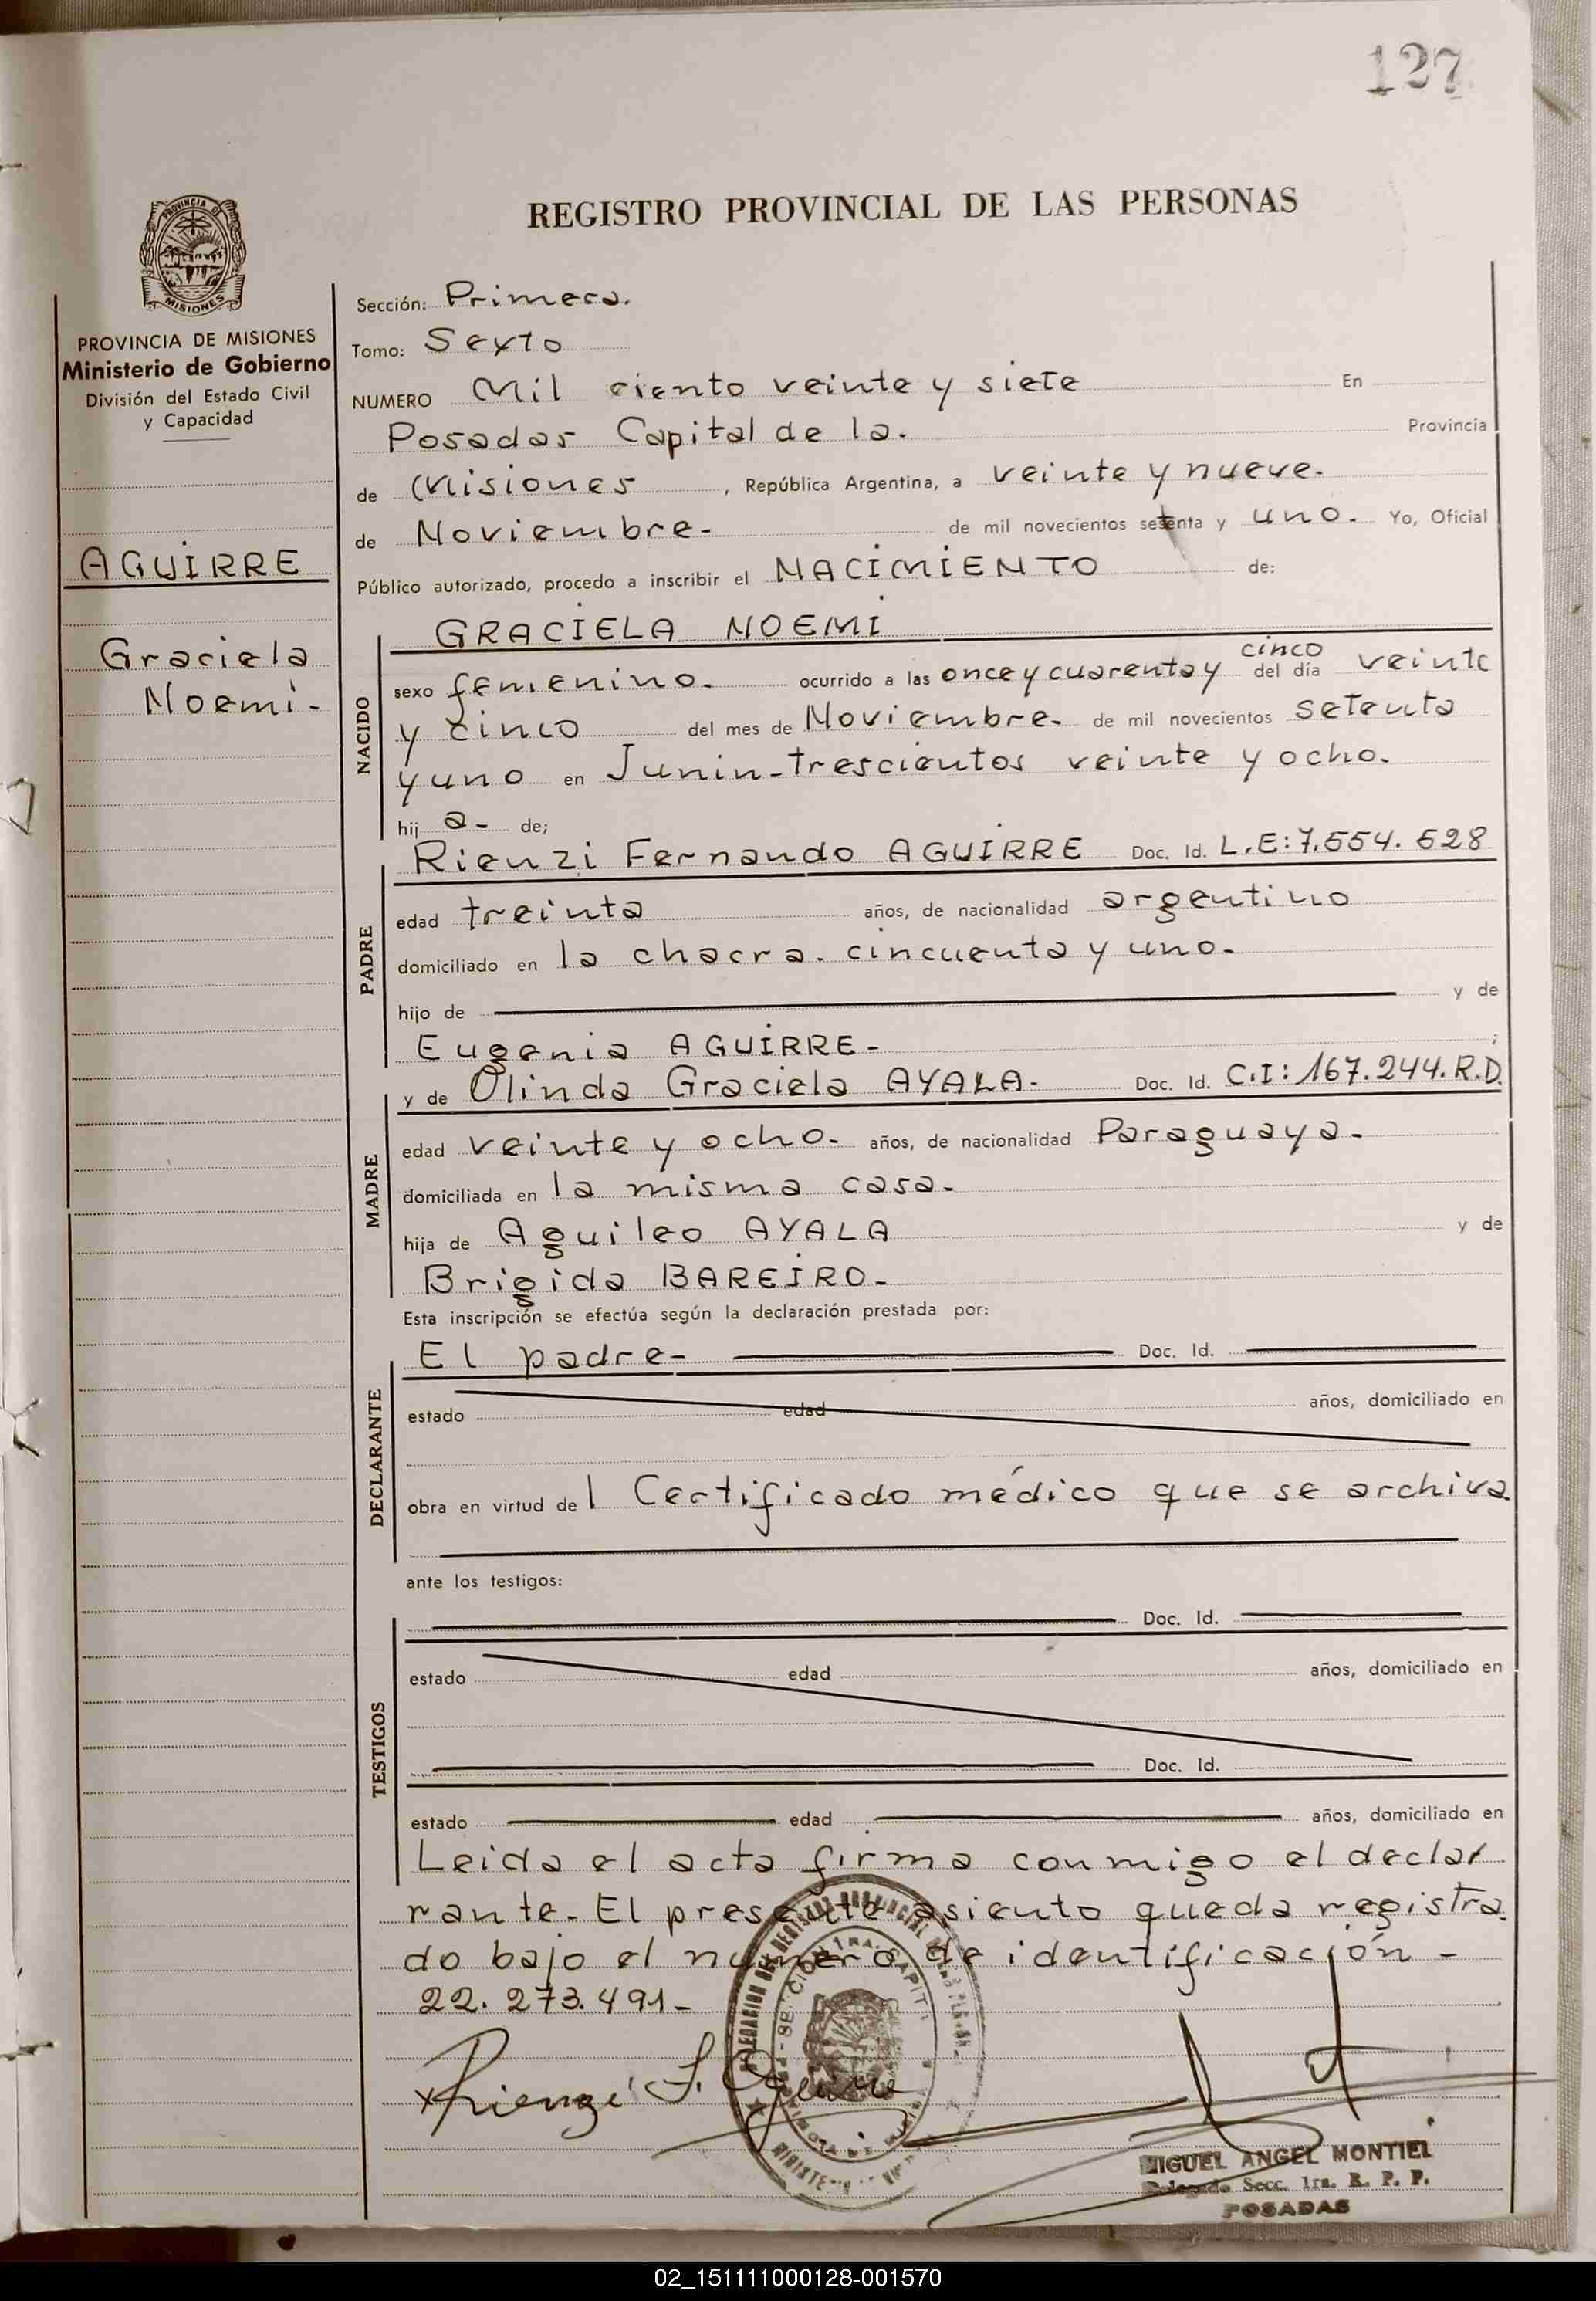 127
REGISTRO PROVINCIAL DE LAS PERSONAS
PROVINCIA DE
MISIONES
PROVINCIA DE MISIONES
Ministerio de Gobierno
División del Estado Civil
y Capacidad
AGUIRRE
Graciela
Noemi.
Sección: Primera.
Tomo: Sexto
NUMERO Mil ciento veinte y siete En
Posadas Capital de la. Provincia
de Misiones , República Argentina, a veinte y nueve.
de Noviembre. de mil novecientos setenta y uno. Yo, Oficial
Público autorizado, procedo a inscribir el NACIMIENTO de:
NACIDO
GRACIELA NOEMI
cinco
sexo femenino. ocurrido a las once y cuarenta y del día veinte
y cinco del mes de Noviembre. de mil novecientos setenta
y uno en Junin-trescientos veinte y ocho.
hij a- de;
PADRE
Rienzi Fernando AGUIRRE Doc. Id. L.E: 7.554.628
edad treinta años, de nacionalidad argentino
domiciliado en la chacra. cincuenta y uno.
hijo de y de
Eugenia AGUIRRE- ;
MADRE
y de Olinda Graciela AYALA- Doc. Id. C.I: 167.244.R.D.
edad veinte y ocho. años, de nacionalidad Paraguaya.
domiciliada en la misma casa.
hija de Aguileo AYALA y de
Brigida BAREIRO-
Esta inscripción se efectúa según la declaración prestada por:
DECLARANTE
El padre- Doc. Id.
estado edad años, domiciliado en
obra en virtud de l Certificado médico que se archiva.
ante los testigos:
TESTIGOS
Doc. Id.
estado edad años, domiciliado en
Doc. Id.
estado edad años, domiciliado en
Leida el acta firma conmigo el decla
rante. El presente asiento queda registra
do bajo el numero de identificación -
22.273.491-
x Rienzi F. Aguirre
MIGUEL ANGEL MONTIEL
Delegado Secc. 1ra. R. P. P.
POSADAS
02_151111000128-001570